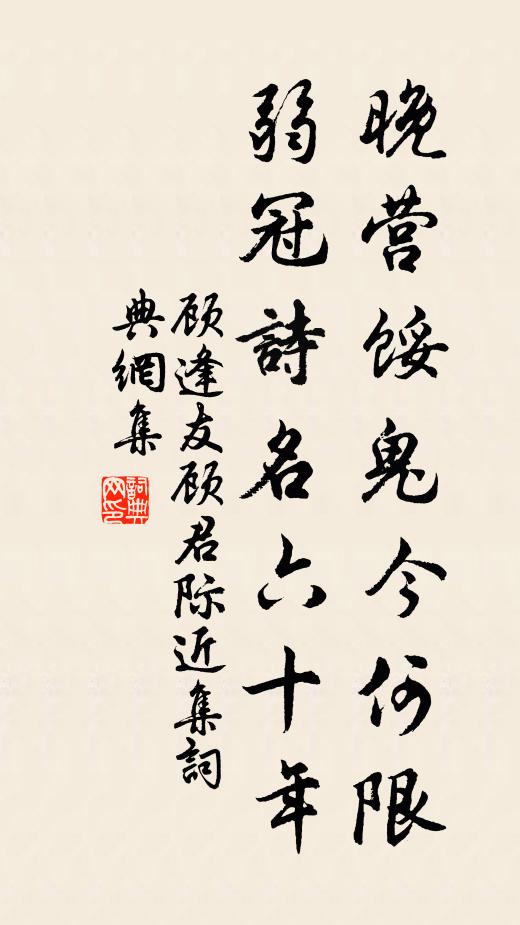 晚营馁鬼今何限
弱冠詩名六十年
顾逢友顾君际近集詞
典網集
詞典
网印